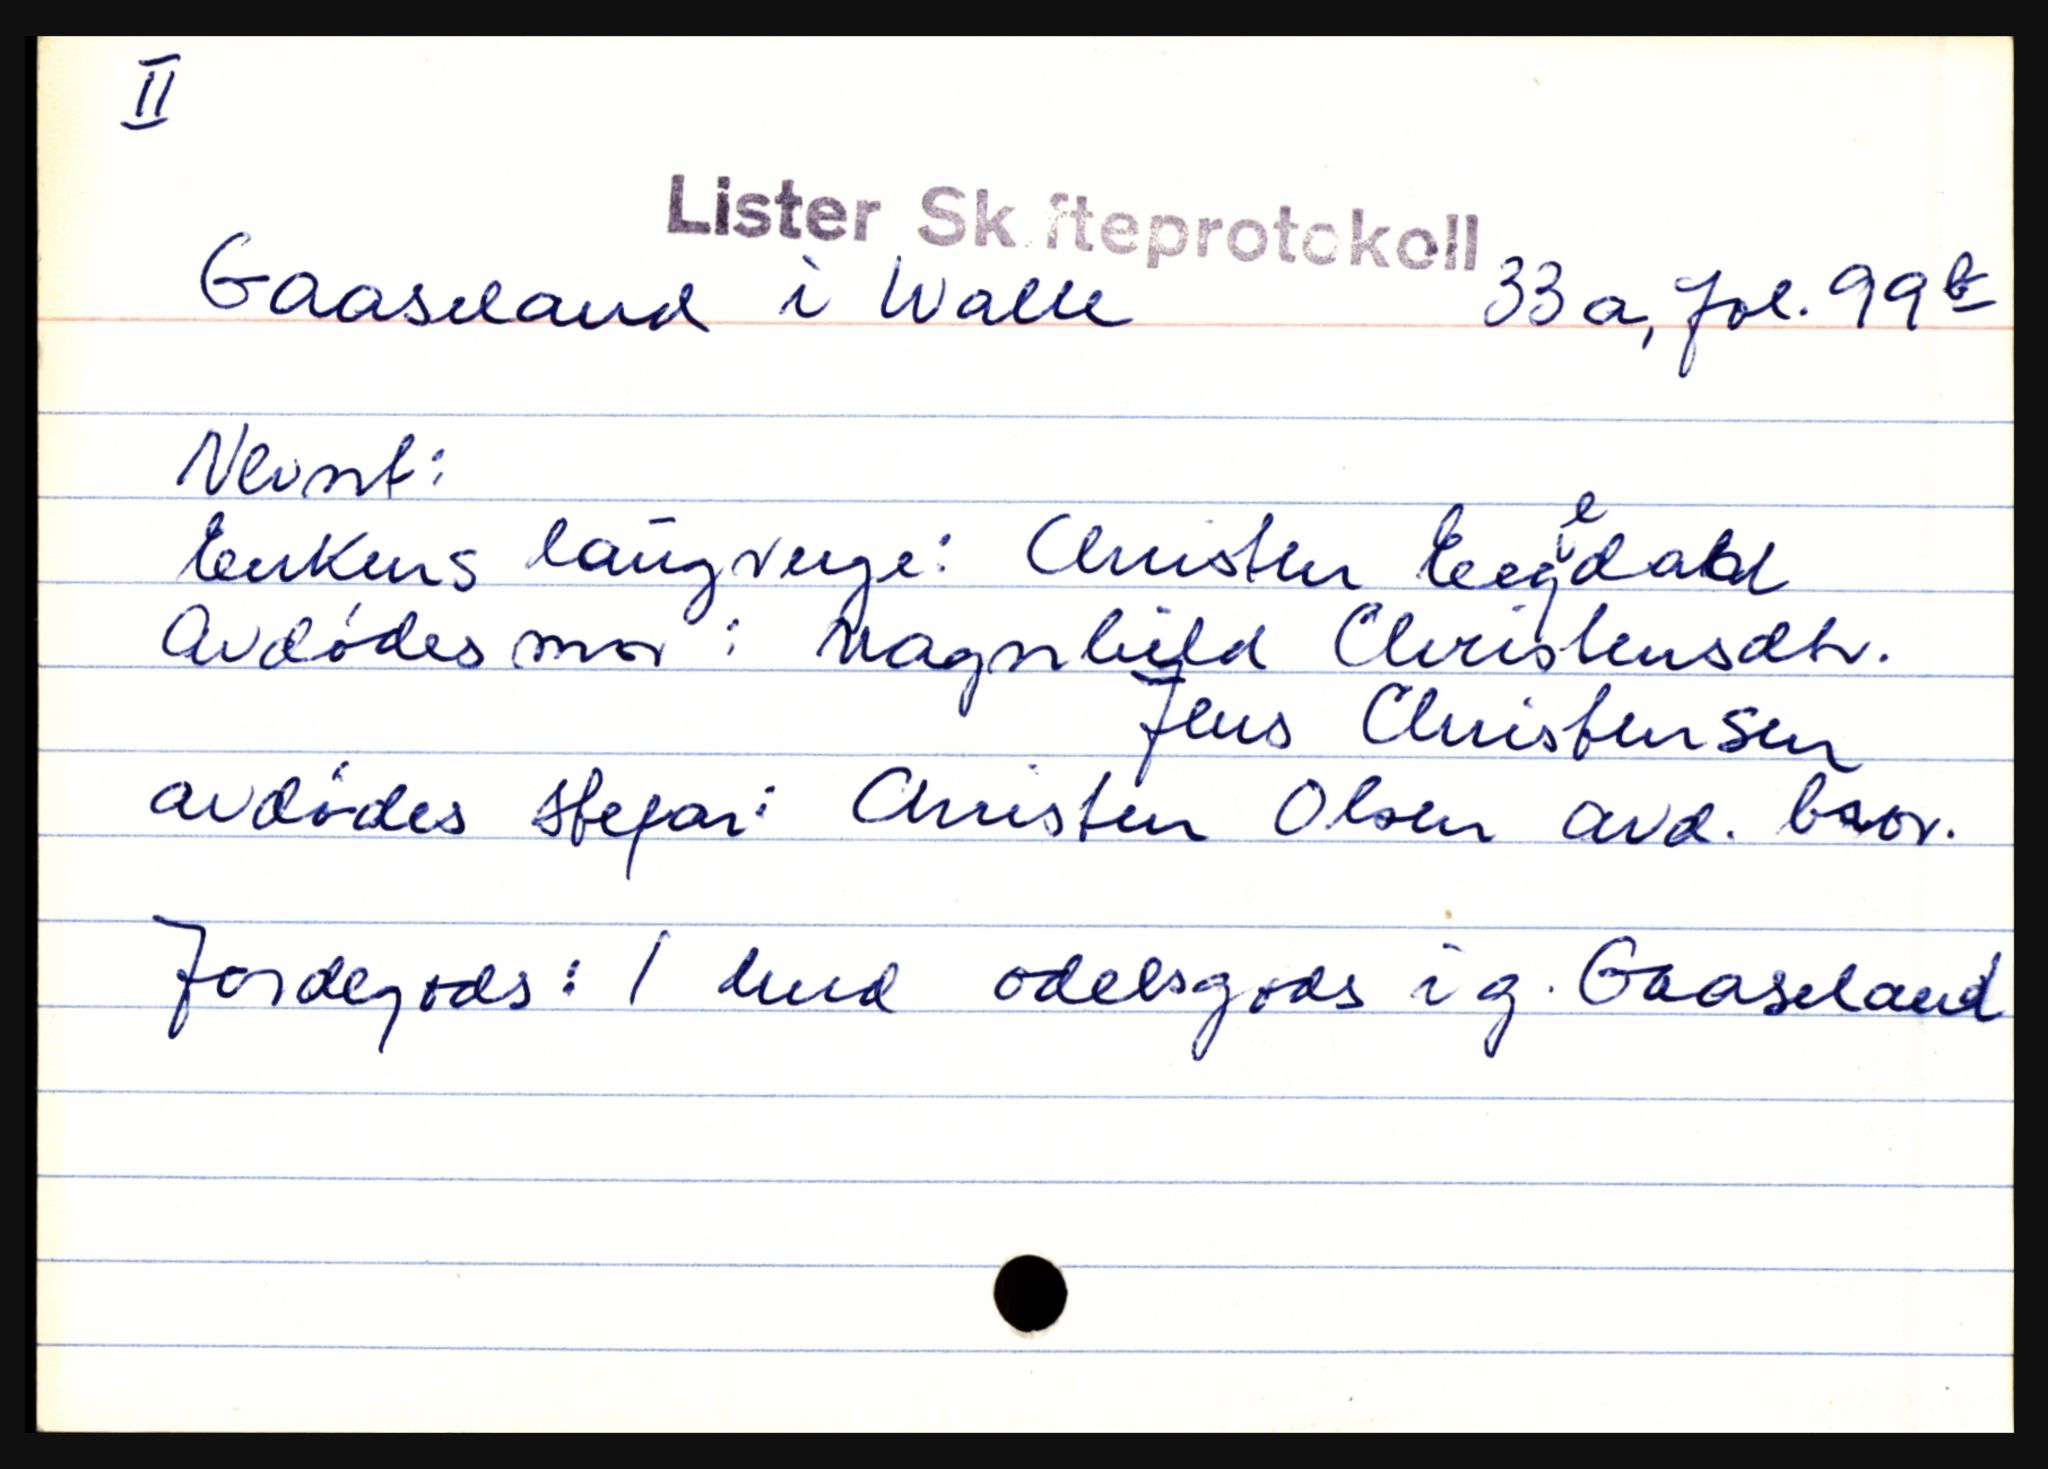 II
Lister Skifteprotokoll
Gaaseland i Walle 33a, fol. 99b
Nevnt:
Enkens laugverge: Christen Eegeland
Avdødes mor: Magnhild Christensdtr.
Jens Christensen
avdødes stefar: Christen Olsen avd. bror.
Jordegods: 1 hud odelsgods i g. Gaaseland